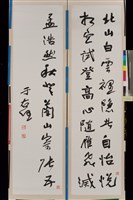 北山白雲裡隱者自怡悅
相望試登高心隨雁飛滅
孟浩然秋登蘭山寄張五
于右任